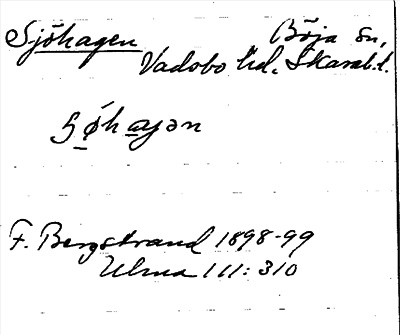 Sjöhagen Böja sn,
Vadsbo hd. Skarab.l.
F. Bergstrand 1898-99
Ulma 111:310